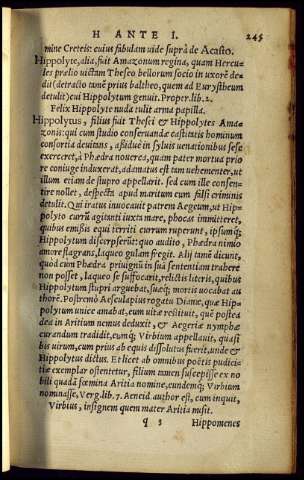 H ANTE I. 245
mine Creteis: cuius fabulam uide suprà de Acasto.
Hippolyte, alia, fuit Amazonum regina, quam Hercu-
les prælio uictam Theseo bellorum socio in uxorē de-
dit (detracto tamē prius baltheo, quem ad Eurystheum
detulit) cui Hippolytum genuit. Proper. lib. 2.
Felix Hippolyte nuda tulit arma papilla.
Hippolytus, filius fuit Thesei & Hippolytes Ama-
zonis: qui cum studio conseruandæ castitatis hominum
consortia deuitans, aßiduè in syluis uenationibus sese
exerceret, à Phædra nouerca, quam pater mortua prio
re coniuge induxerat, adamatus est tam uehementer, ut
illum etiam de stupro appellarit. sed cum ille consen-
tire nollet, despecta apud maritum cum falsi criminis
detulit. Qui iratus inuocauit patrem Aegeum, ut Hip-
polyto currū agitanti iuxta mare, phocas immitteret,
quibus emißis equi territi currum ruperunt, ipsumq́;
Hippolytum discerpserūt: quo audito, Phædra nimio
amore flagrans, laqueo gulam fregit. Alij tamē dicunt,
quod cum Phædra priuignū in suā sententiam trahere
non posset, laqueo se suffocarit, relictis literis, quibus
Hippolytum stupri arguebat, suæq́; mortis uocabat au
thorē. Postremò Aesculapius rogatu Dianæ, quæ Hip-
polytum unicè amabat, eum uitæ restituit, quē postea
dea in Aritium nemus deduxit, & Aegeriæ nymphæ
curandum tradidit, eumq́; Virbium appellauit, quasi
bis uirum, cum prius ab equis dissolutus fuerit, unde &
Hippolytus dictus. Et licet ab omnibus poëtis pudici-
tiæ exemplar ostentetur, filium tamen suscepisse ex no
bili quadā fœmina Aritia nomine, eundemq́; Virbium
nominasse, Verg. lib. 7. Aeneid. author est, cum inquit,
Virbius, insignem quem mater Aritia misit.
q 3 Hippomenes